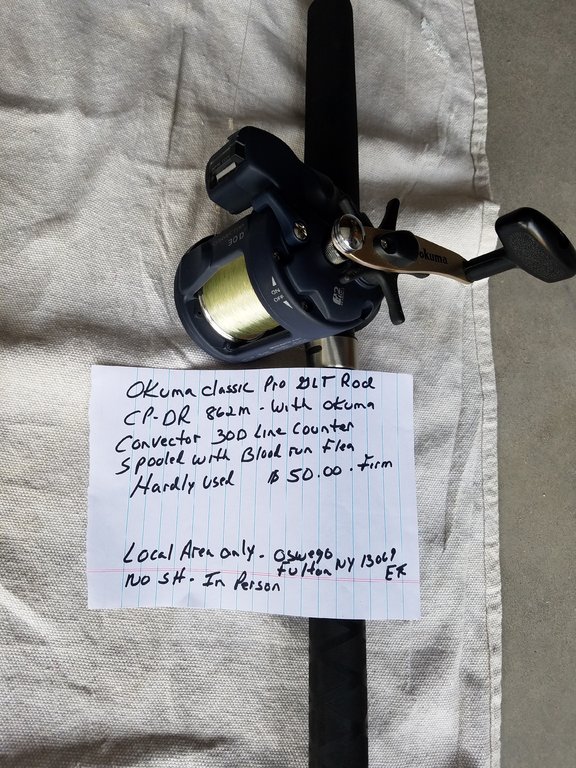 30D
okuma
ON
OFF
Okuma classic Pro GLT Rod
CP-DR 862m - with Okuma
Convector 30D Line Counter
Spooled with Blood run Flea
Hardly Used $50.00 - Firm
Local Area only - Oswego
Fulton NY 13069
No SH - In Person